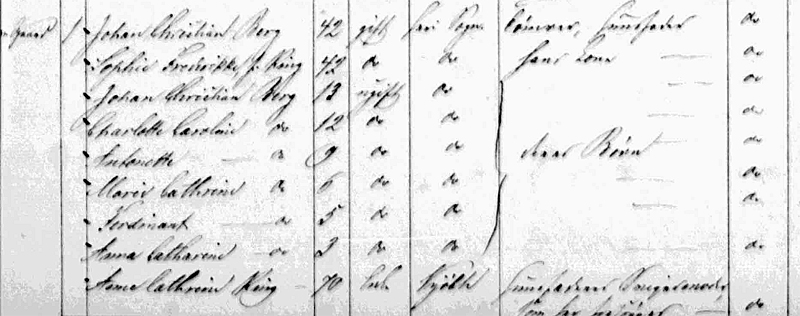 Gaard 1 Johan Christian Berg 42 gift heri Sogn Tømrer, Huusfader do
Sophie Frederikke f. Ring 42 do do hans Kone do
Johan Christian Berg 13 ugift do do
Charlotte Caroline do 12 do do do
Antonette do 9 do do deres Børn do
Marie Cathrine do 6 do do do
Ferdinant do 5 do do do
Anna Catharine do 3 do do do
Anne Cathrine Ring 70 Enke Huusfaderens Svigermoder,
som do